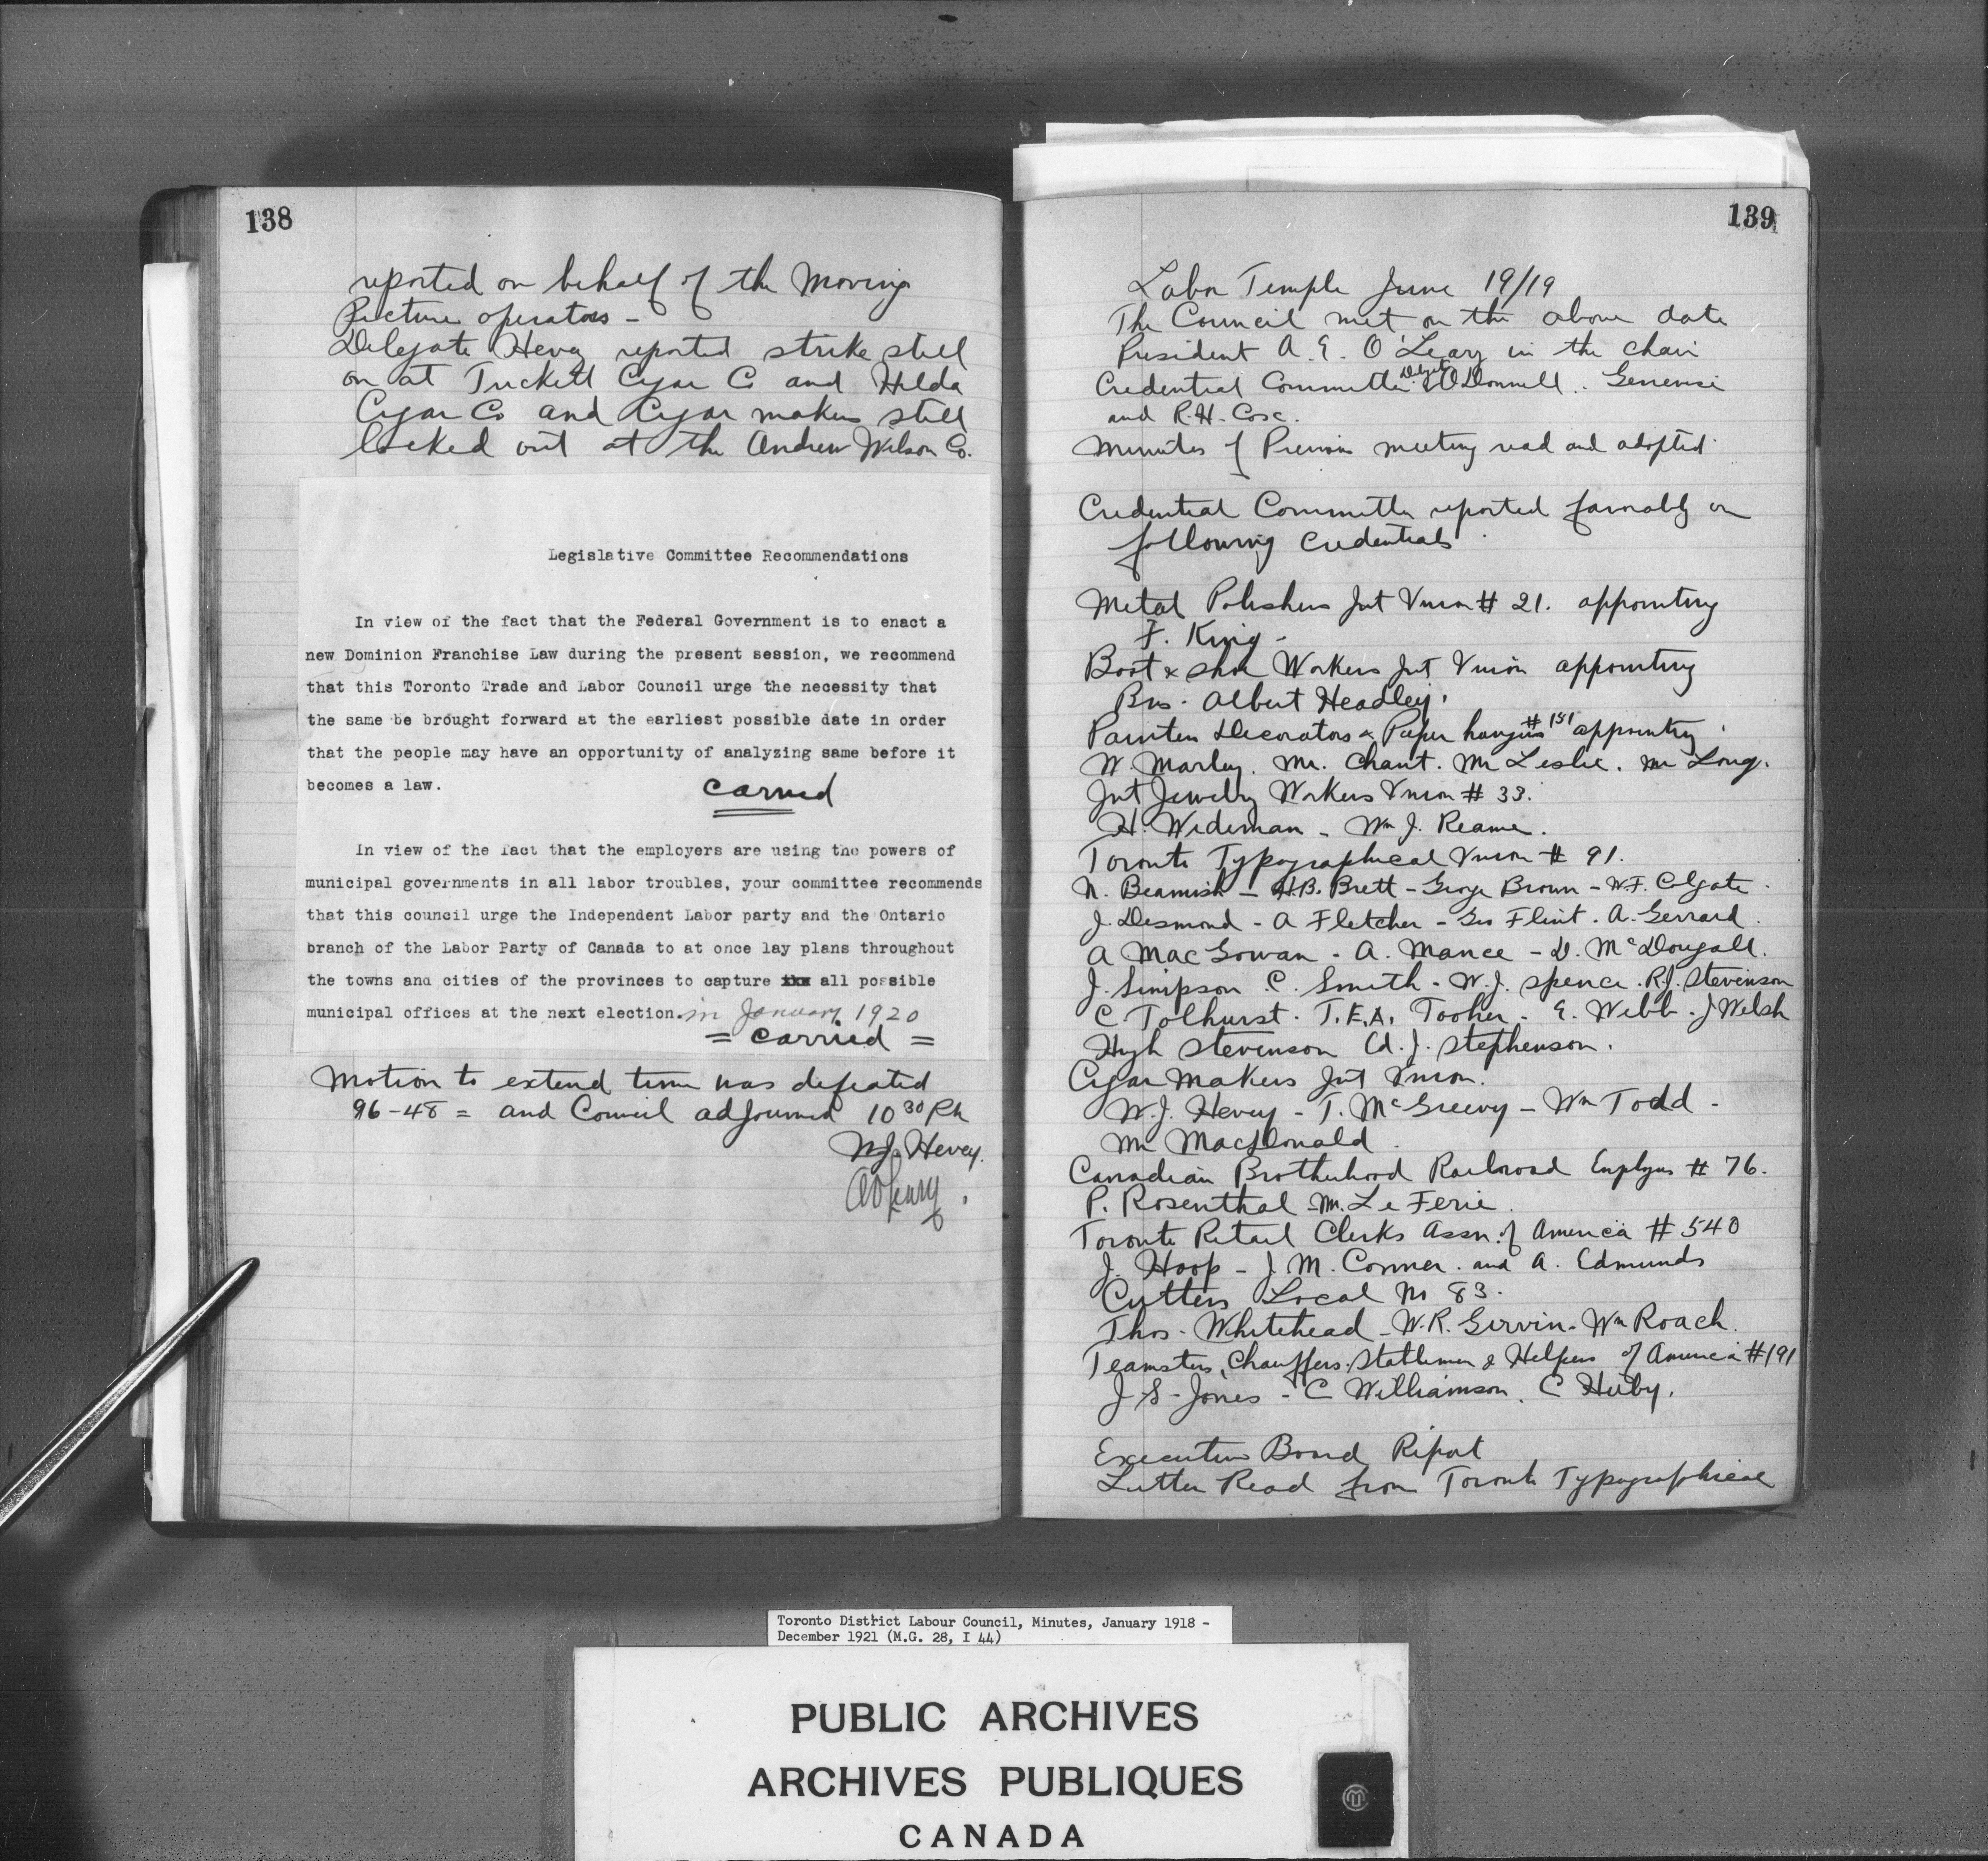 138
reported on behalf of the Moving
Picture operators -
Delegate Hevey reported strike still
on at Tuckett Cigar Co and Hilda
Cigar Co and Cigar makers still
locked out at the Andrew Wilson Co.
Legislative Committee Recommendations
In view of the fact that the Federal Government is to enact a
new Dominion Franchise Law during the present session, we recommend
that this Toronto Trade and Labor Council urge the necessity that
the same be brought forward at the earliest possible date in order
that the people may have an opportunity of analyzing same before it
becomes a law.
carried
In view of the fact that the employers are using the powers of
municipal governments in all labor troubles, your committee recommends
that this council urge the Independent Labor party and the Ontario
branch of the Labor Party of Canada to at once lay plans throughout
the towns and cities of the provinces to capture all possible
municipal offices at the next election. in January 1920
= carried =
Motion to extend time was defeated
96-48 = and Council adjourned 10 30 PM
W.J. Hevey.
A O'Leary.
139
Labor Temple June 19/19
The Council met on the above date
President A. E. O'Leary in the chair
Credential Committee Delegates O'Donnell.
and R.H. Cox.
Minutes of Previous meeting read and adopted.
Credential Committee reported favorably on
following Credentials.
Metal Polishers Int Union # 21. appointing
F. King -
Boot & Shoe Workers Int Union appointing
Bro. Albert Headley.
Painters Decorators & Paper hangers # 151 appointing
W. Marley. Mr. Chant. Mr Leslie. Mr Long.
Int Jewelry Workers Union # 33.
H. Wideman - Wm J. Reamer.
Toronto Typographical Union # 91.
N. Beamish - H.B. Brett - George Brown - W.F. Colgate.
J. Desmond - A Fletcher - Geo Flint. A. Gerrard.
A MacGowan - A. Mance - D. McDougall.
J. Simpson C. Smith - W.J. Spence. R.J. Stevenson
C Tolhurst. T.E.A. Tooher - E. Webb - J Welsh
Hugh Stevenson Ed. J. Stephenson.
Cigar Makers Int Union.
W.J. Hevey - T. McGreevy - Wm Todd -
Mr MacDonald.
Canadian Brotherhood Railroad Employes # 76.
P. Rosenthal - M. Le Ferie.
Toronto Retail Clerks Assn. of America # 540
J. Hoop - J. M. Conner. and A. Edmunds
Cutters Local No 83.
Thos. Whitehead - W.R. Girvin - Wm Roach.
Teamsters, Chauffers, Stablemen & Helpers of America # 191
J. S. Jones - C Williamson. C Huby.
Executive Board Report
Letter Read from Toronto Typographical
Toronto District Labour Council, Minutes, January 1918 -
December 1921 (M.G. 28, I 44)
PUBLIC ARCHIVES
ARCHIVES PUBLIQUES
CANADA